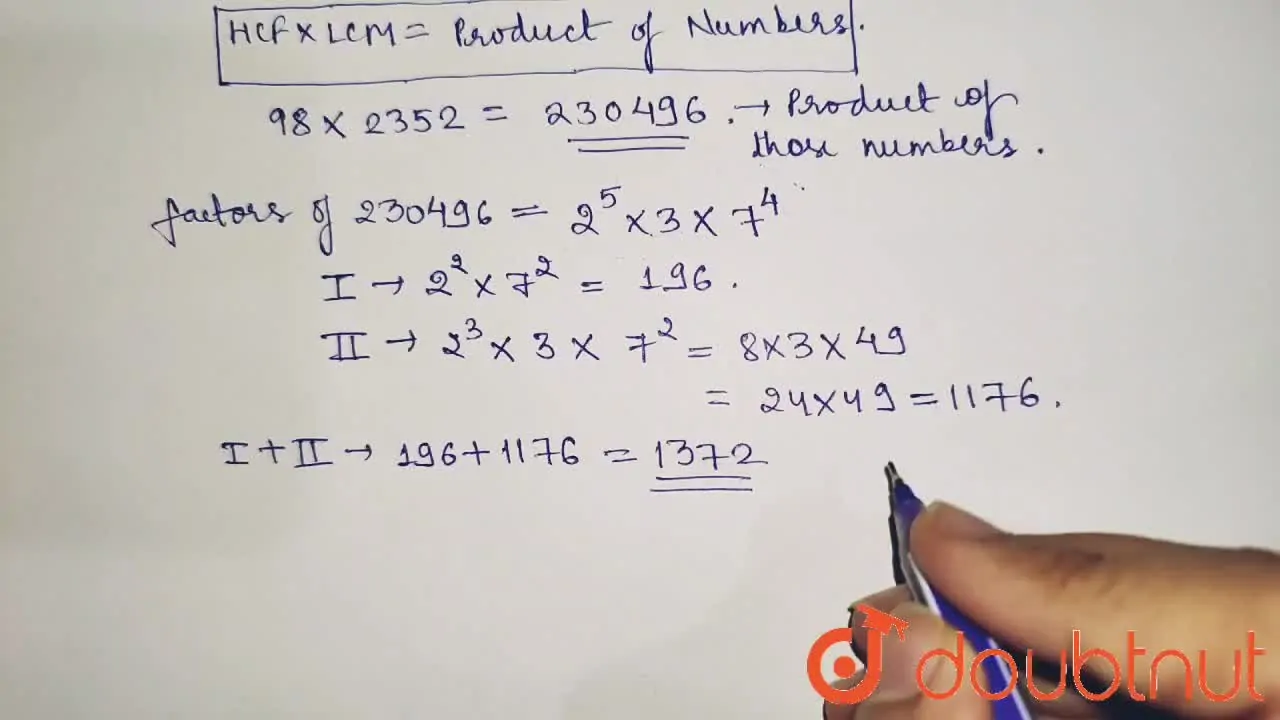 HCF X LCM = Product of Numbers.
98 X 2352 = 230496. → Product of
those numbers.
factors of 230496 = 2⁵ X 3 X 7⁴
I → 2² X 7² = 196.
II → 2³ X 3 X 7² = 8X3X49
= 24X49 = 1176.
I + II → 196 + 1176 = 1372
doubtnut